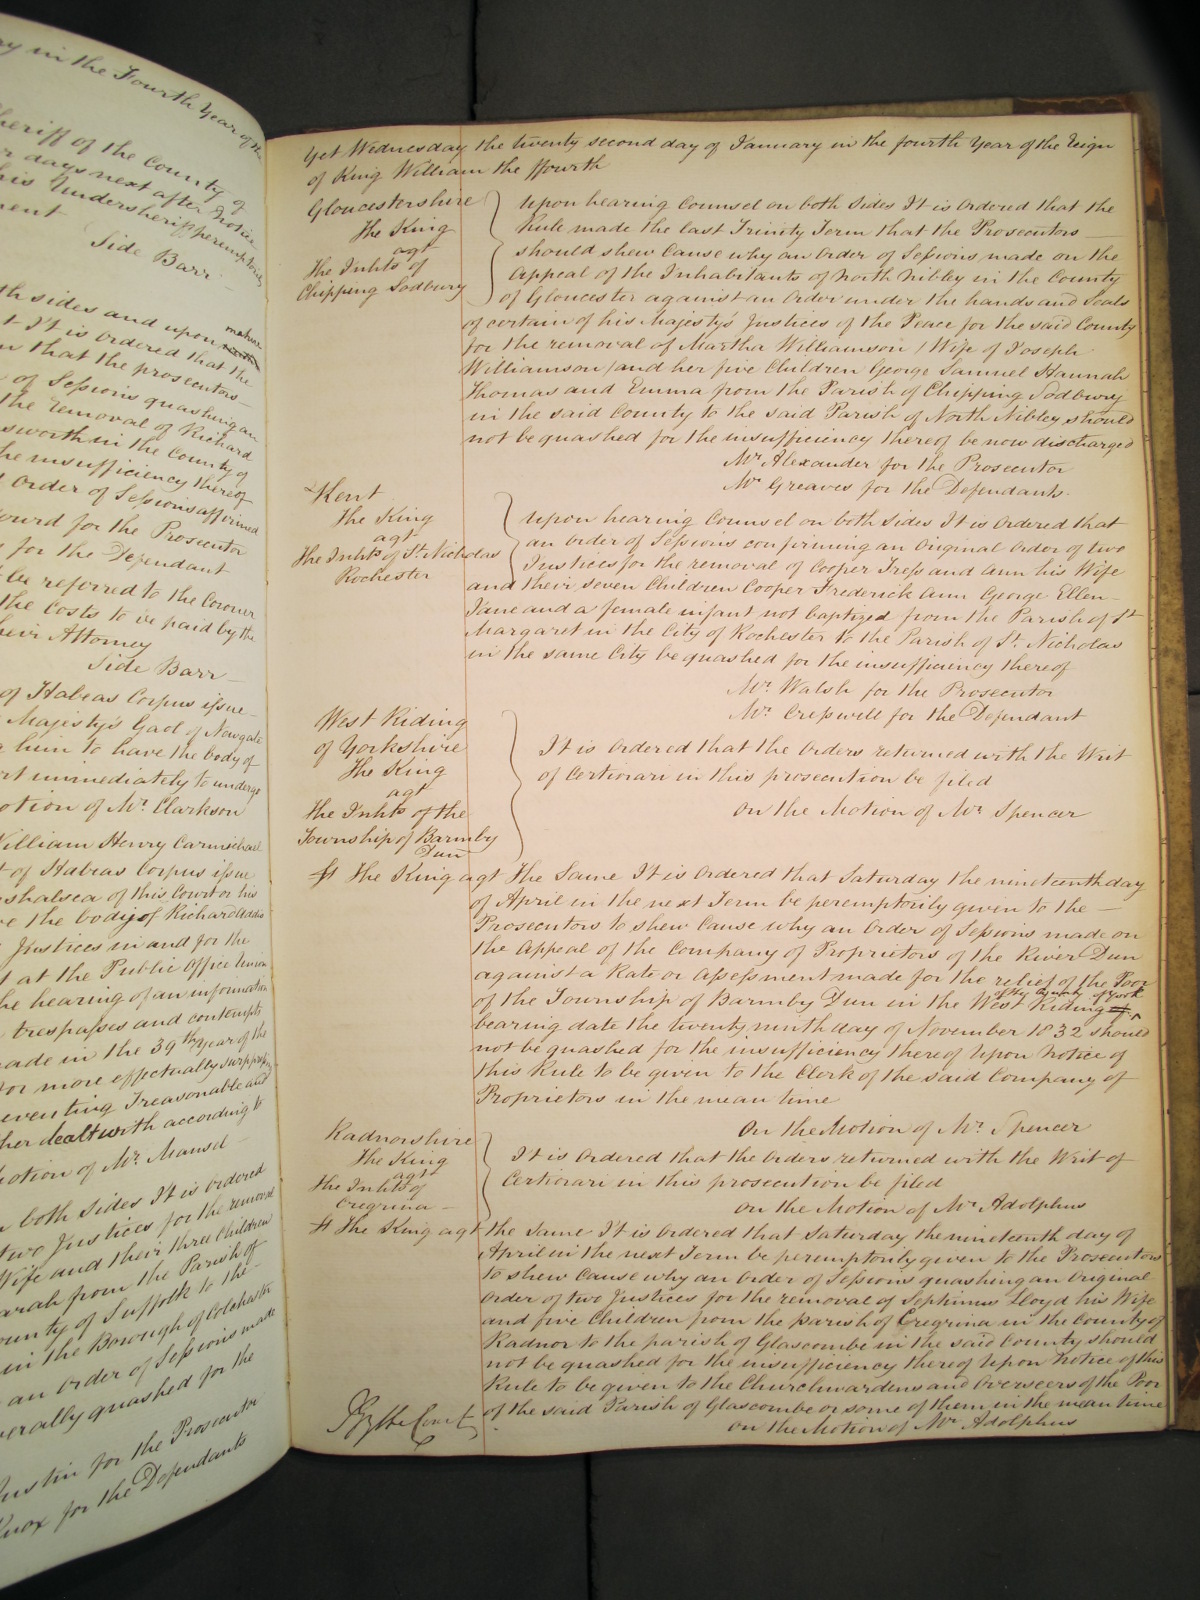 ry in the Fourth Year of the
heriff of the County of
r days next after Notice
his Undersheriff peremptorily
ment
Side Barr
th sides and upon
t It is ordered that the
n that the prosecutors
of Sessions quashing an
the removal of Richard
sworth in the County of
he insufficiency thereof
order of Sessions affirmed
ourd for the Prosecutor
for the Defendant
be referred to the Coroner
the Costs to be paid by the
heir Attorney
Side Barr
of Habeas Corpus issue
Majesty's Gaol of Newgate
g him to have the body of
rt immediately to undergo
otion of Mr. Clarkson
William Henry Carmichael
t of Habeas Corpus issue
shalsea of this Court or his
ve the body of Richard Addis
Justices in and for the
d at the Public Office
he hearing of an information
trespasses and contempts
made in the 39th Year of the
for more effectually suppressing
eventing Treasonable and
her dealt with according to
otion of Mr. Mansd
n both sides It is ordered
two Justices for the removal
Wife and their three Children
arah from the Parish of
ounty of Suffolk to the
in the Borough of Colchester
an order of Sessions made
erally quashed for the
ustin for the Prosecutor
Knox for the Defendants
Yet Wednesday the twenty second day of January in the fourth Year of the Reign
of King William the ffourth
Gloucestershire
The King
agt
The Inhts of
Chipping Sodbury
Upon hearing Counsel on both sides It is Ordered that the
Rule made the last Trinity Term that the Prosecutors
should shew Cause why an Order of Sessions made on the
Appeal of the Inhabitants of North Nibley in the County
of Gloucester against an Order under the hands and Seals
of certain of his Majesty's Justices of the Peace for the said County
for the removal of Martha Williamson (Wife of Joseph
Williamson) and her five Children George Samuel Hannah
Thomas and Emma from the Parish of Chipping Sodbury
in the said County to the said Parish of North Nibley should
not be quashed for the insufficiency thereof be now discharged
Mr. Alexander for the Prosecutor
Mr. Greaves for the Defendants.
Kent
The King
agt
The Inhts of St. Nicholas
Rochester
Upon hearing Counsel on both sides It is Ordered that
an Order of Sessions confirming an Original Order of two
Justices for the removal of Cooper Tress and Ann his Wife
and their seven Children Cooper Frederick Ann George Ellen
Jane and a female infant not baptized from the Parish of St
Margaret in the City of Rochester to the Parish of St. Nicholas
in the same City be quashed for the insufficiency thereof
Mr. Walsh for the Prosecutor
Mr. Cresswell for the Defendant
West Riding
of Yorkshire
The King
agt
The Inhts of the
Township of Barmby
Dun
It is Ordered that the Orders returned with the Writ
of Certiorari in this prosecution be filed
On the Motion of Mr. Spencer
St The King agt The Same It is Ordered that Saturday the nineteenth day
of April in the next Term be peremptorily given to the
Prosecutors to shew Cause why an Order of Sessions made on
the Appeal of the Company of Proprietors of the River Dun
against a Rate or Assessment made for the relief of the Poor
of the Township of Barmby Dun in the West Riding of the County of York
bearing date the twenty ninth day of November 1832 should
not be quashed for the insufficiency thereof Upon Notice of
this Rule to be given to the Clerk of the said Company of
Proprietors in the mean time
On the Motion of Mr. Spencer
Radnorshire
The King
agt
The Inhts of
Cregrina
It is Ordered that the Orders returned with the Writ of
Certiorari in this prosecution be filed
On the Motion of Mr. Adolphus
St The King agt the Same It is Ordered that Saturday the nineteenth day of
April in the next Term be peremptorily given to the Prosecutors
to shew Cause why an Order of Sessions quashing an Original
Order of two Justices for the removal of Septimus Lloyd his Wife
and five Children from the parish of Cregrina in the County of
Radnor to the parish of Glascombe in the said County should
not be quashed for the insufficiency thereof Upon Notice of this
Rule to be given to the Churchwardens and Overseers of the Poor
of the said Parish of Glascombe or some of them in the mean time
On the Motion of Mr. Adolphus
By the Court